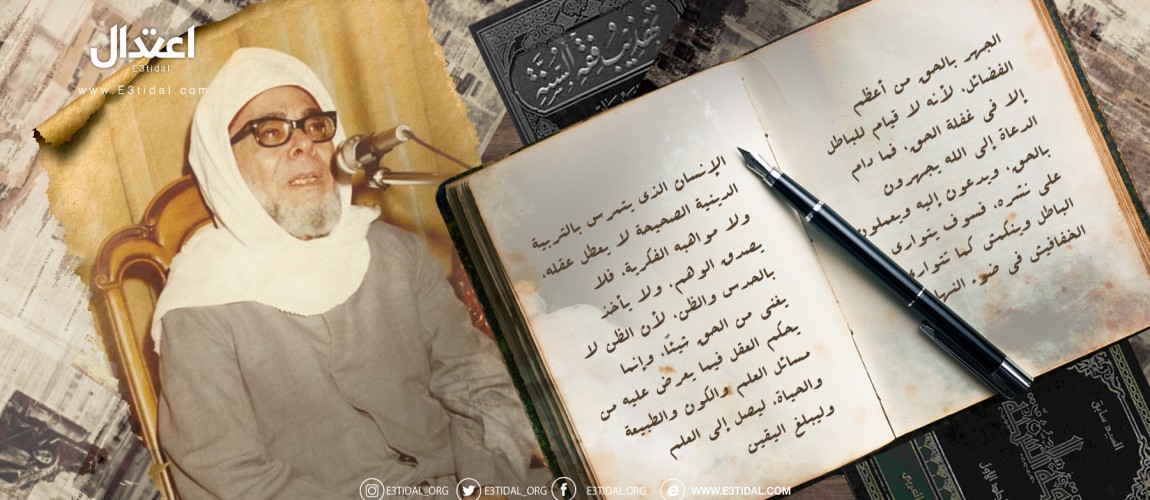 اعتدال
E3tidal
www.E3tidal.com
تهذيب فقه السنة
الجهر بالحق من أعظم
الفضائل، لأنه لا قيام للباطل
إلا في غفلة الحق، فما دام
الدعاة إلى الله يجهرون
بالحق، ويدعون إليه ويعملون
على نشره، فسوف يتوارى
الباطل وينكمش كما تتوارى
الخفافيش في ضوء النهار
الإنسان الذي يتمرس بالتربية
الدينية الصحيحة لا يعطل عقله،
ولا مواهبه الفكرية، فلا
يصدق الوهم، ولا يأخذ
بالحدس والظن، لأن الظن لا
يغني من الحق شيئًا، وإنما
يحكم العقل فيما يعرض عليه من
مسائل العلم والكون والطبيعة
والحياة، ليصل إلى العلم
وليبلغ اليقين
السيد سابق
E3TIDAL_ORG
E3TIDAL_ORG
E3TIDAL.ORG
WWW.E3TIDAL.COM